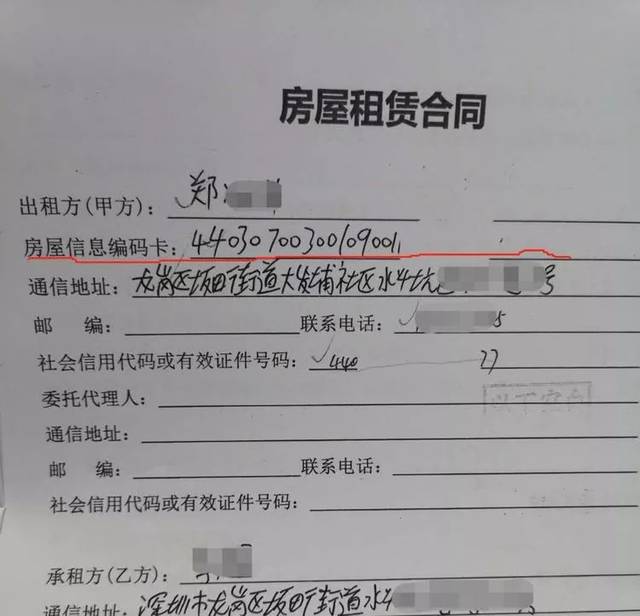 房屋租赁合同
出租方(甲方): 郑
房屋信息编码卡: 44030700300109001
通信地址: 龙岗区坂田街道大发埔社区水斗坑 号
邮 编: 联系电话: 5
社会信用代码或有效证件号码: 440 27
委托代理人:
以下空白
通信地址:
邮 编: 联系电话:
社会信用代码或有效证件号码:
承租方(乙方):
通信地址: 深圳市龙岗区坂田街道水斗